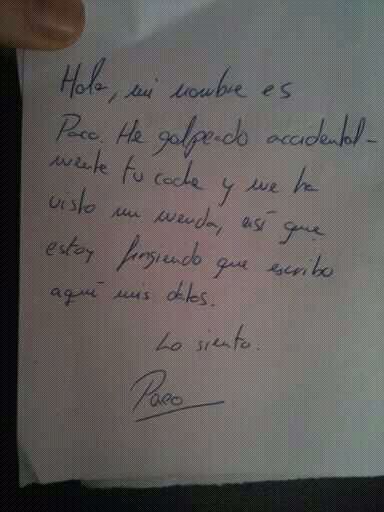 Hola, mi nombre es
Paco. He golpeado accidental-
mente tu coche y me ha
visto un menda, así que
estoy fingiendo que escribo
aquí mis datos.
Lo siento.
Paco